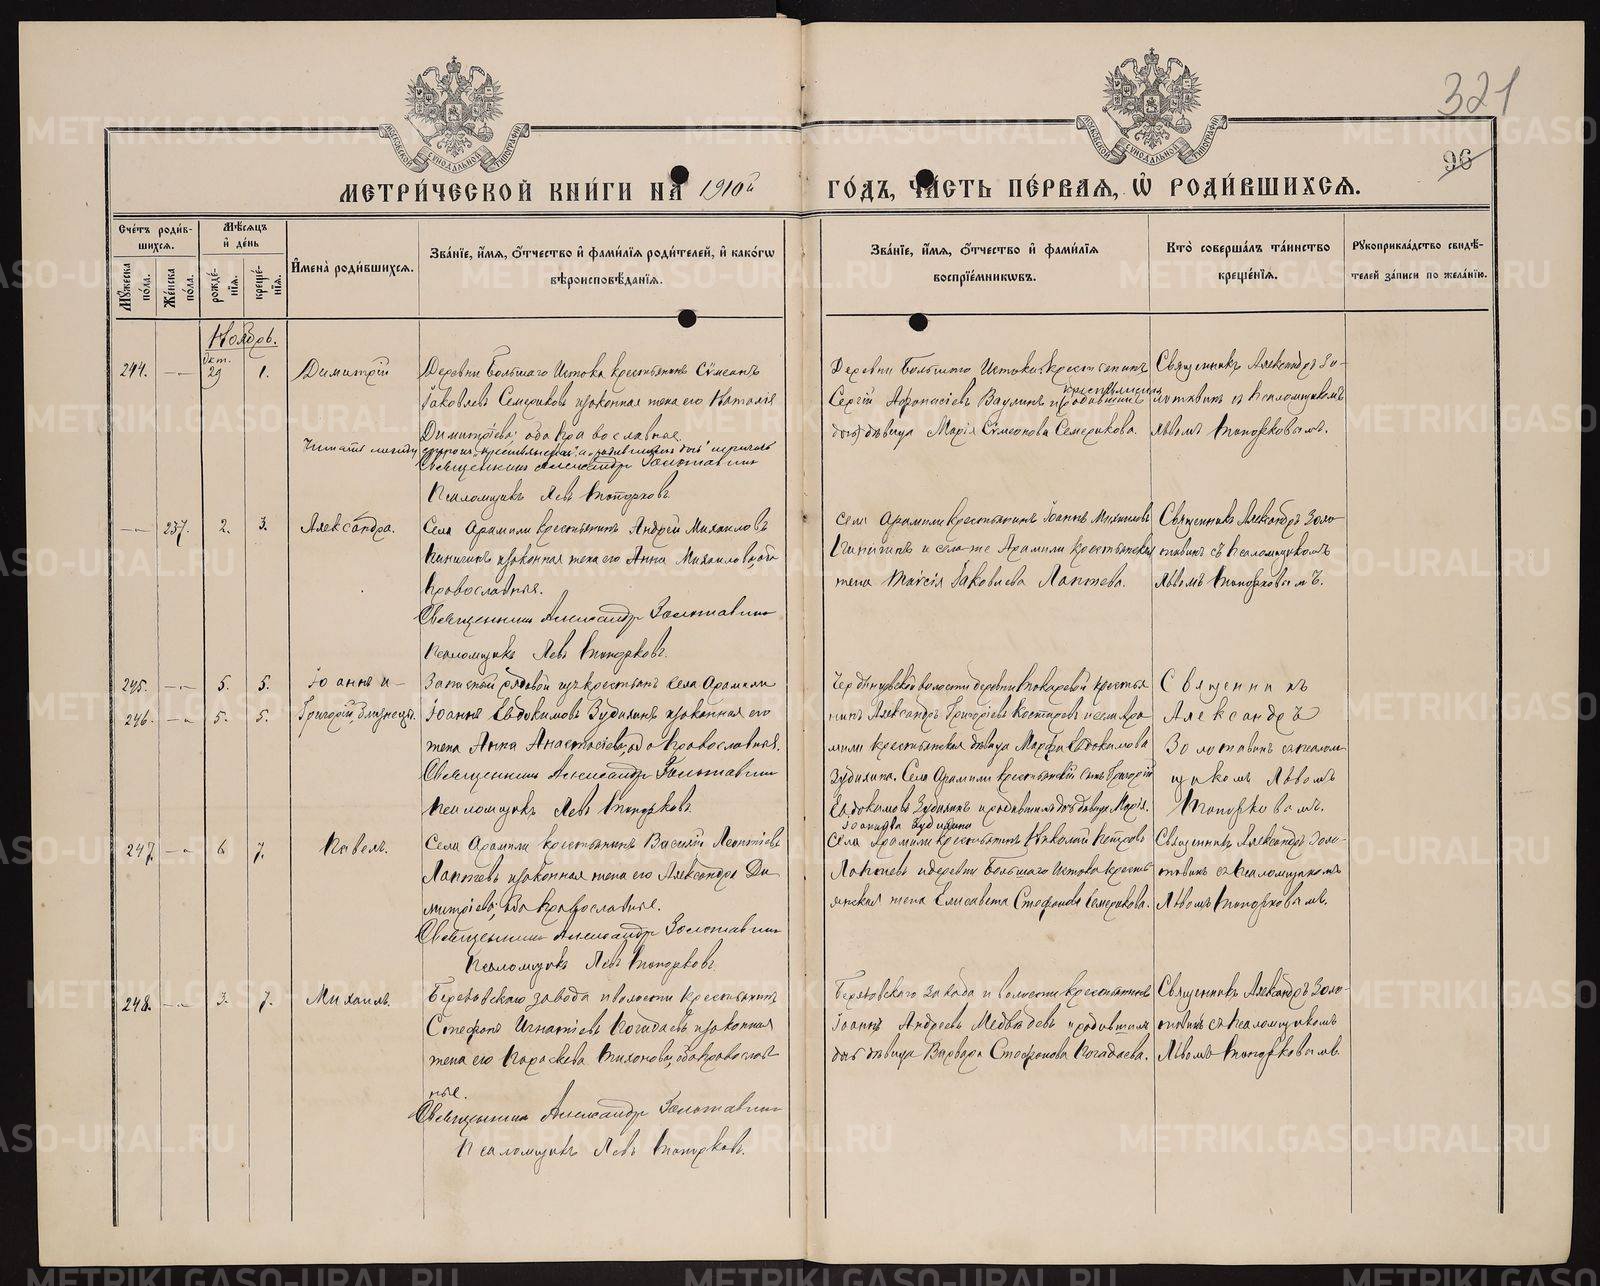 321
96
МОСКОВСКОЙ СѴНОДАЛЬНОЙ ТИПОГРАФІИ
МОСКОВСКОЙ СѴНОДАЛЬНОЙ ТИПОГРАФІИ
МЕТРИ́ЧЕСКОЙ КНИ́ГИ НА 1910й ГО́ДЪ, ЧА́СТЬ ПЕ́РВАЯ, Ѡ҆ РОДИ́ВШИХСЯ.
Сче́тъ роди́в-
шихся.
Му́жеска по́ла.
Же́нска по́ла.
Мѣ́сяцъ
и҆ де́нь
рожде́-
нїѧ.
креще́-
нїѧ.
И҆мена̀ роди́вшихся.
Зва́нїе, и҆́мѧ, ѻ҆́тчество и҆ фами́лїѧ роди́телей, и҆ како́гѡ
вѣроисповѣ́данїѧ.
Зва́нїе, и҆́мѧ, ѻ҆́тчество и҆ фами́лїѧ
воспрїе́мникѡвъ.
Кто̀ соверша́лъ та́инство
креще́нїѧ.
Рꙋкоприкла́дство свидѣ́-
телей за́писи по жела́нїю.
Ноябрь.
244.
Окт.
29
1.
Димитрій
Деревни Большаго Истока крестьянинъ Сѵмеонъ
Іаковлевъ Семериковъ и законная жена его Наталія
Димитріева; оба православные.
Священникъ Александръ Золотавинъ
Псаломщикъ Левъ Топорковъ.
Деревни Большаго Истока крестьянинъ
Сергій Афонасіевъ Ваулинъ и родившійся
дочь дѣвица Марія Сѵмеонова Семерикова.
Священникъ Александръ Зо-
лотавинъ съ псаломщикомъ
Львомъ Топорковымъ.
237.
2.
3.
Александра.
Села Арамили крестьянинъ Андрей Михаиловъ
и законная жена его Анна Михаилова, оба
православные.
Священникъ Александръ Золотавинъ
Псаломщикъ Левъ Топорковъ.
Села Арамили крестьянинъ Іоаннъ Михаиловъ
и села-же Арамили крестьянская
жена Таисія Іаковлева Лаптева.
Священникъ Александръ Золо-
тавинъ съ псаломщикомъ
Львомъ Топорковымъ.
245.
5.
5.
Іоаннъ и
246.
5.
5.
Григорій, близнецы.
Запасной рядовой изъ крестьянъ села Арамили
Іоаннъ Евдокимовъ Зудилинъ и законная его
жена Анна Анастасіева, оба православные.
Священникъ Александръ Золотавинъ
Псаломщикъ Левъ Топорковъ.
волости деревни Токаревой крестья
нинъ Александръ Григоріевъ Костаревъ и села Ара-
мили крестьянская дѣвица Марфа Евдокимова
Зудилина. Села Арамили крестьянскій сынъ Григорій
Евдокимовъ Зудилинъ и родившихъ дочь дѣвица Марія.
Іоаннова Зудилина
Священникъ
Александръ
Золотавинъ съ псалом-
щикомъ Львомъ
Топорковымъ.
247.
6
7.
Павелъ.
Села Арамили крестьянинъ Василій Леонтіевъ
Лаптевъ и законная жена его Александра Ди
митріева; оба православные.
Священникъ Александръ Золотавинъ
Псаломщикъ Левъ Топорковъ.
Села Арамили крестьянинъ Николай Петровъ
Лаптевъ и деревни Большаго Истока кресть-
янская жена Елисавета Стефанова Семерикова.
Священникъ Александръ Золо-
тавинъ съ псаломщикомъ
Львомъ Топорковымъ.
248.
3.
7.
Михаилъ.
Березовскаго завода и волости крестьянинъ
Стефанъ Игнатіевъ Погадаевъ и законная
жена его Параскева Тихонова, оба православ-
ные.
Священникъ Александръ Золотавинъ
Псаломщикъ Левъ Топорковъ.
Березовскаго завода и волости крестьянинъ
Іоаннъ Андреевъ Медвѣдевъ и родившихъ
дочь дѣвица Варвара Стефанова Погадаева.
Священникъ Александръ Золо-
тавинъ съ псаломщикомъ
Львомъ Топорковымъ.
METRIKI.GASO-URAL.RU